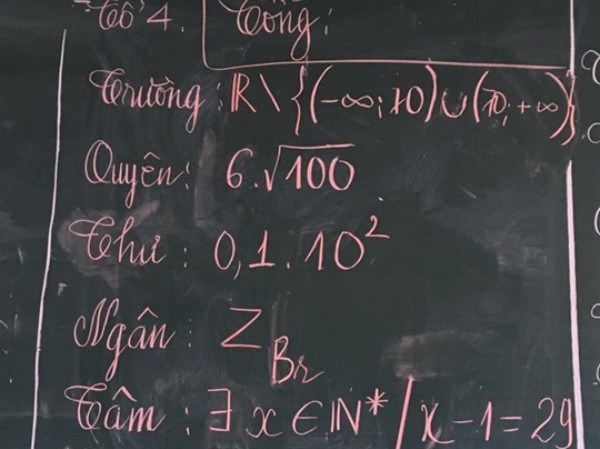 Tổ 4. Tổng:
Trường: ℝ\{(-∞; 70)∪(70; +∞)}
Quyên: 6.√100
Thư: 0,1.10²
Ngân: Z_Br
Tâm: ∃ x ∈ ℕ* / x - 1 = 29